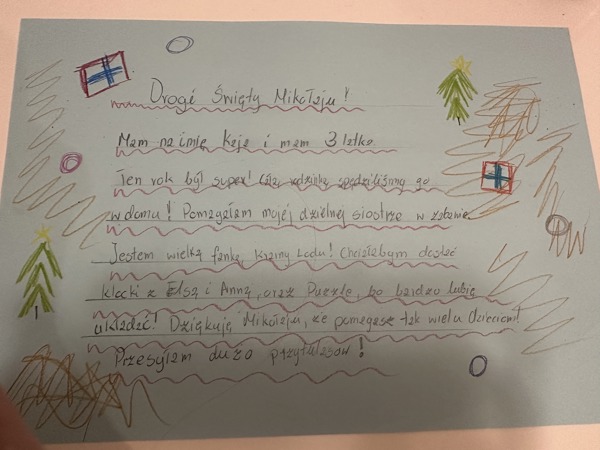 Drogi Święty Mikołaju!
Mam na imię Kaja i mam 3 latka.
Ten rok był super! Całą rodzinką spędziliśmy go
w domu! Pomagałam mojej dzielnej siostrze w zabawie.
Jestem wielką fanką Krainy Lodu! Chciałabym dostać
klocki z Elsą i Anną, oraz Puzzle, bo bardzo lubię
układać! Dziękuję Mikołaju, że pomagasz tak wielu dzieciom!
Przesyłam dużo przytulasów!